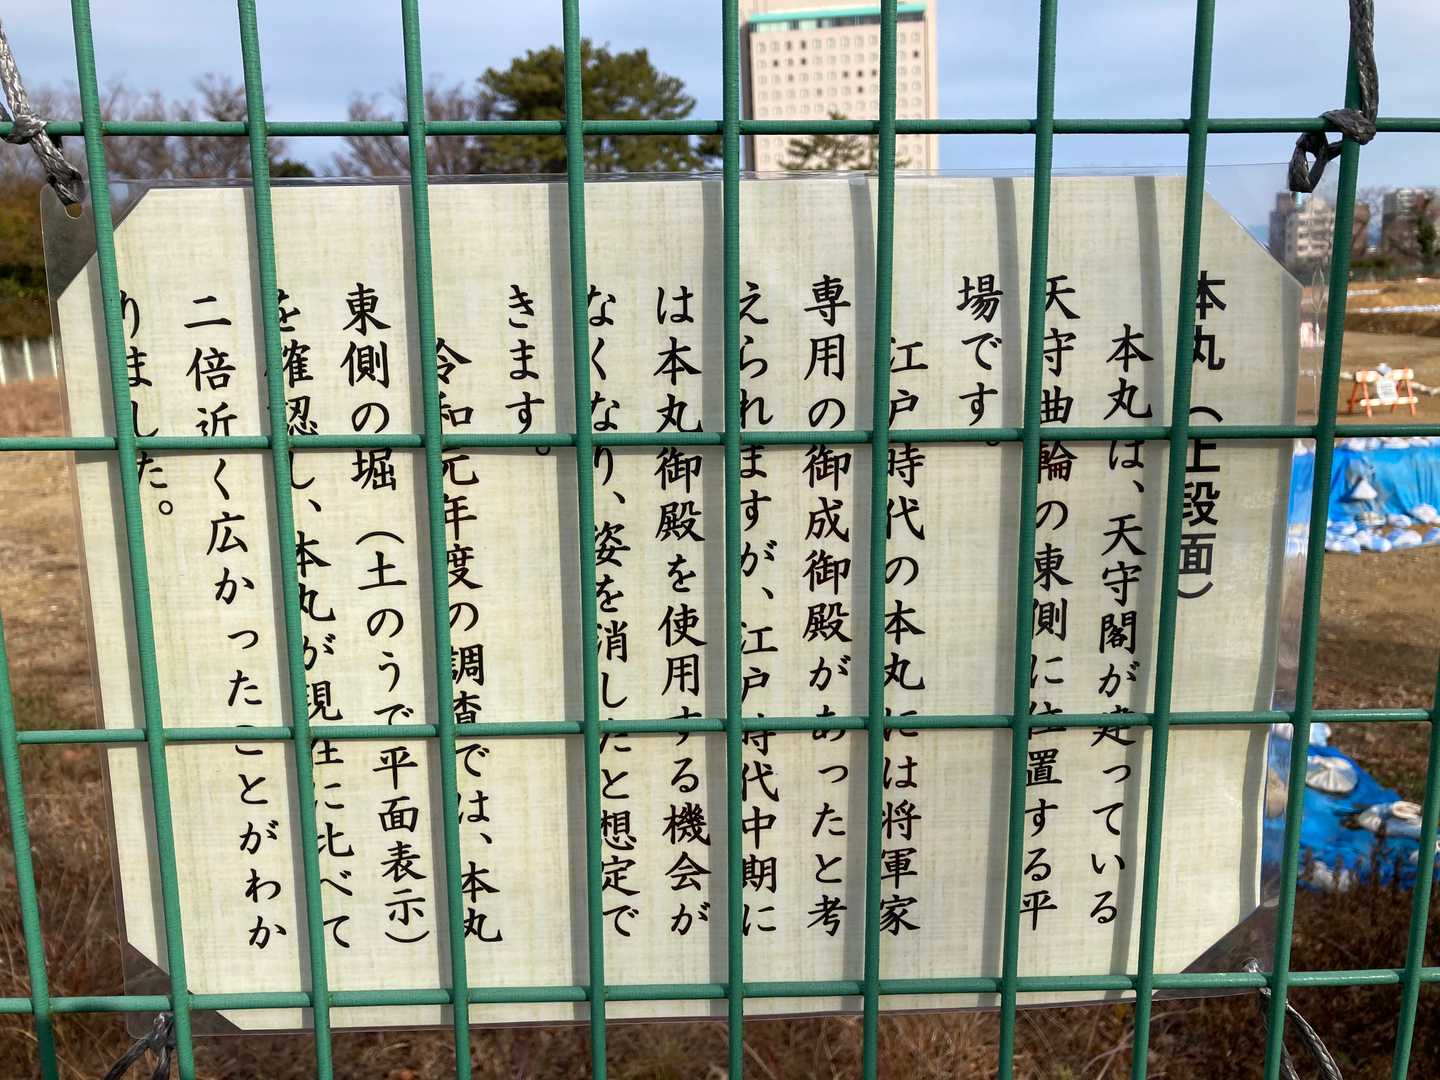 本丸（上段面）
本丸は、天守閣が建っている
天守曲輪の東側に位置する平
場です。
江戸時代の本丸には将軍家
専用の御成御殿があったと考
えられますが、江戸時代中期に
は本丸御殿を使用する機会が
なくなり、姿を消したと想定で
きます。
令和元年度の調査では、本丸
東側の堀（土のうで平面表示）
を確認し、本丸が現在に比べて
二倍近く広かったことがわか
りました。